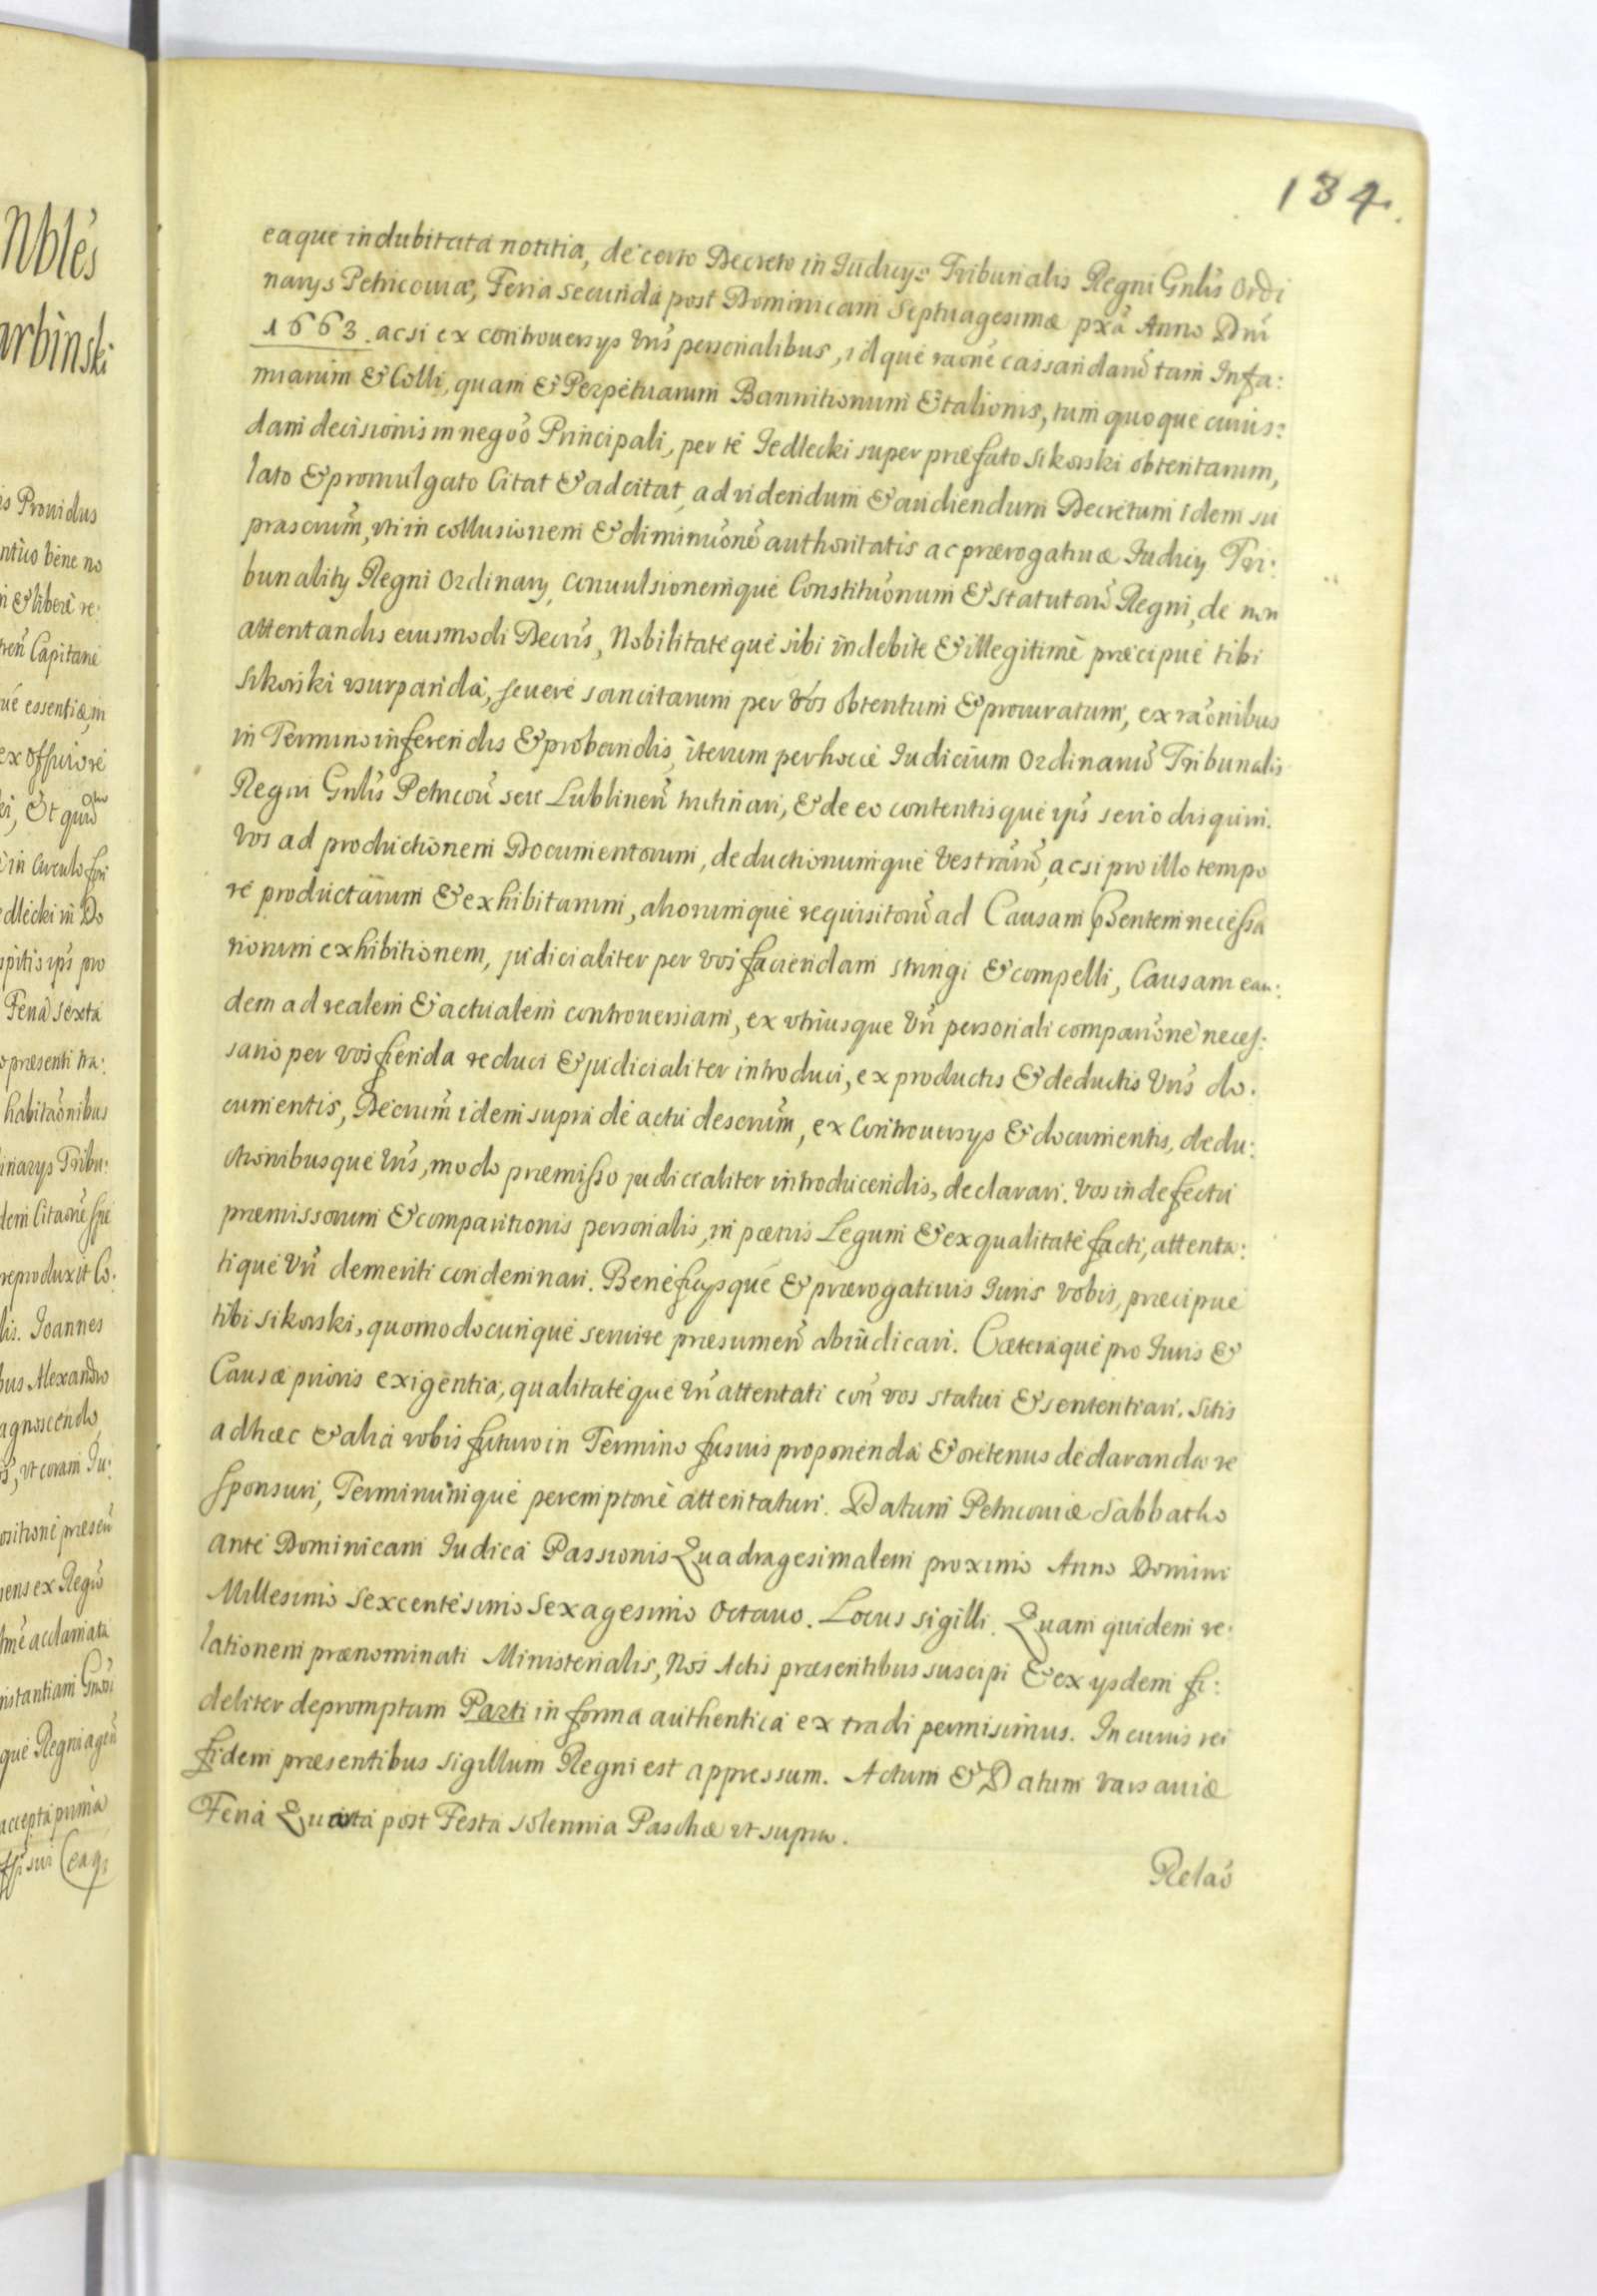 Nbles
arbinski
is Prouidus
ntiuo bene no
n & liberè re:
Capitanè
ué essentiæ, in
ex officio re
in circulo fori
edlecki in Do
spitio ipũs pro
Feria sexta
o præsenti tra:
habitaõnibus
inarys Tribu:
dem Citaõne
reproduxit Co:
lis. Joannes
bus Alexandro
agnoscendo
vt coram Iu:
ositione præseñ
iens ex Regio
acclamata
instantiam
qué Regni ageñ
accepta prima
sui (eaq;
184.
eaque indubitata notitia, de certo Decreto in Iudicys Tribunalis Regni Gnlis Ordi
narys Petricouiæ, Feria secunda post Dominicam Septuagesimæ pxã Anno Dni
1663. acsi ex controuersys Vrĩs personalibus, idque raõne cassandarũ tam Infa:
miarum & Colli, quam & Perpetuarum Bannitionum & talionis, tum quoque cuius:
dam decisionis in negoõ Principali, per te Jedlecki super præfato Sikorski obtentarum,
lato & promulgato Citat & adcitat, ad videndum & audiendum Decretum idem su
prascrium̃, vti in collusionem & diminuõnẽ authoritatis ac prærogatiuæ Iudicy Tri:
bunality Regni Ordinary, conuulsionemque Constituõnum & Statutorũ Regni, de non
attentandis eiusmodi Decrĩs, Nobilitate que sibi indebite & illegitimè præcipué tibi
Sikorski vsurpanda, seueré sancitarum per Vos obtentum & procuratum, ex raõnibus
in Termino inferendis & probandis, iterum per hocce Iudicium Ordinariũ Tribunalis
Regni Gnlis Petricoũ seu Lublineñ trutinari, & de eo contentisque ipĩs serio disquiri.
Vos ad productionem Documentorum, deductionumqué Vestrarũ, acsi pro illo tempo
re productarum & exhibitarum, aliorumqué requisitorũ ad Causam Pñtem necessa
riorum exhibitionem, judicialiter per vos faciendam stringi & compelli, Causam ean:
dem ad realem & actualem controuersiam, ex vtriusque Vrñ personali compariõne neces:
sario per vos fienda reduci & judicialiter introduci, ex productis & deductis Vrĩs do:
cumentis, Decrum̃ idem supra de actu descrium̃, ex Controuersys & documentis, dedu:
ctionibusque Vrĩs, modo præmisso judicialiter introducendis, declarari. Vos in defectu
præmissorum & comparitionis personalis, in pœnis Legum & ex qualitate facti, attenta:
tique Vrñ demeriti condemnari. Beneficysqué & prærogatiuis Iuris vobis, præcipue
tibi Sikorski, quomodocunqué seruire præsumeñ abiudicari. Cæteraqué pro Iuris &
Causæ prioris exigentia, qualitateque Vrñ attentati coñ vos statui & sententiari. Sitis
ad hæc & alia vobis futuro in Termino fusius proponenda & oretenus declaranda re
sponsuri, Terminumque peremptoriè attentaturi. Datum Petricouiæ Sabbatho
ante Dominicam Iudica Passionis Quadragesimalem proximo Anno Domini
Millesimo Sexcentesimo Sexagesimo Octauo. Locus sigilli. Quam quidem re:
lationem prænominati Ministerialis, Nos Actis præsentibus suscipi & ex ysdem fi:
deliter depromptam Parti in forma authentica ex tradi permisimus. In cuius rei
fidem præsentibus Sigillum Regni est appressum. Actum & Datum Varsauiæ
Feria Quarta post Festa Solennia Paschæ vt supra.
Relaõ